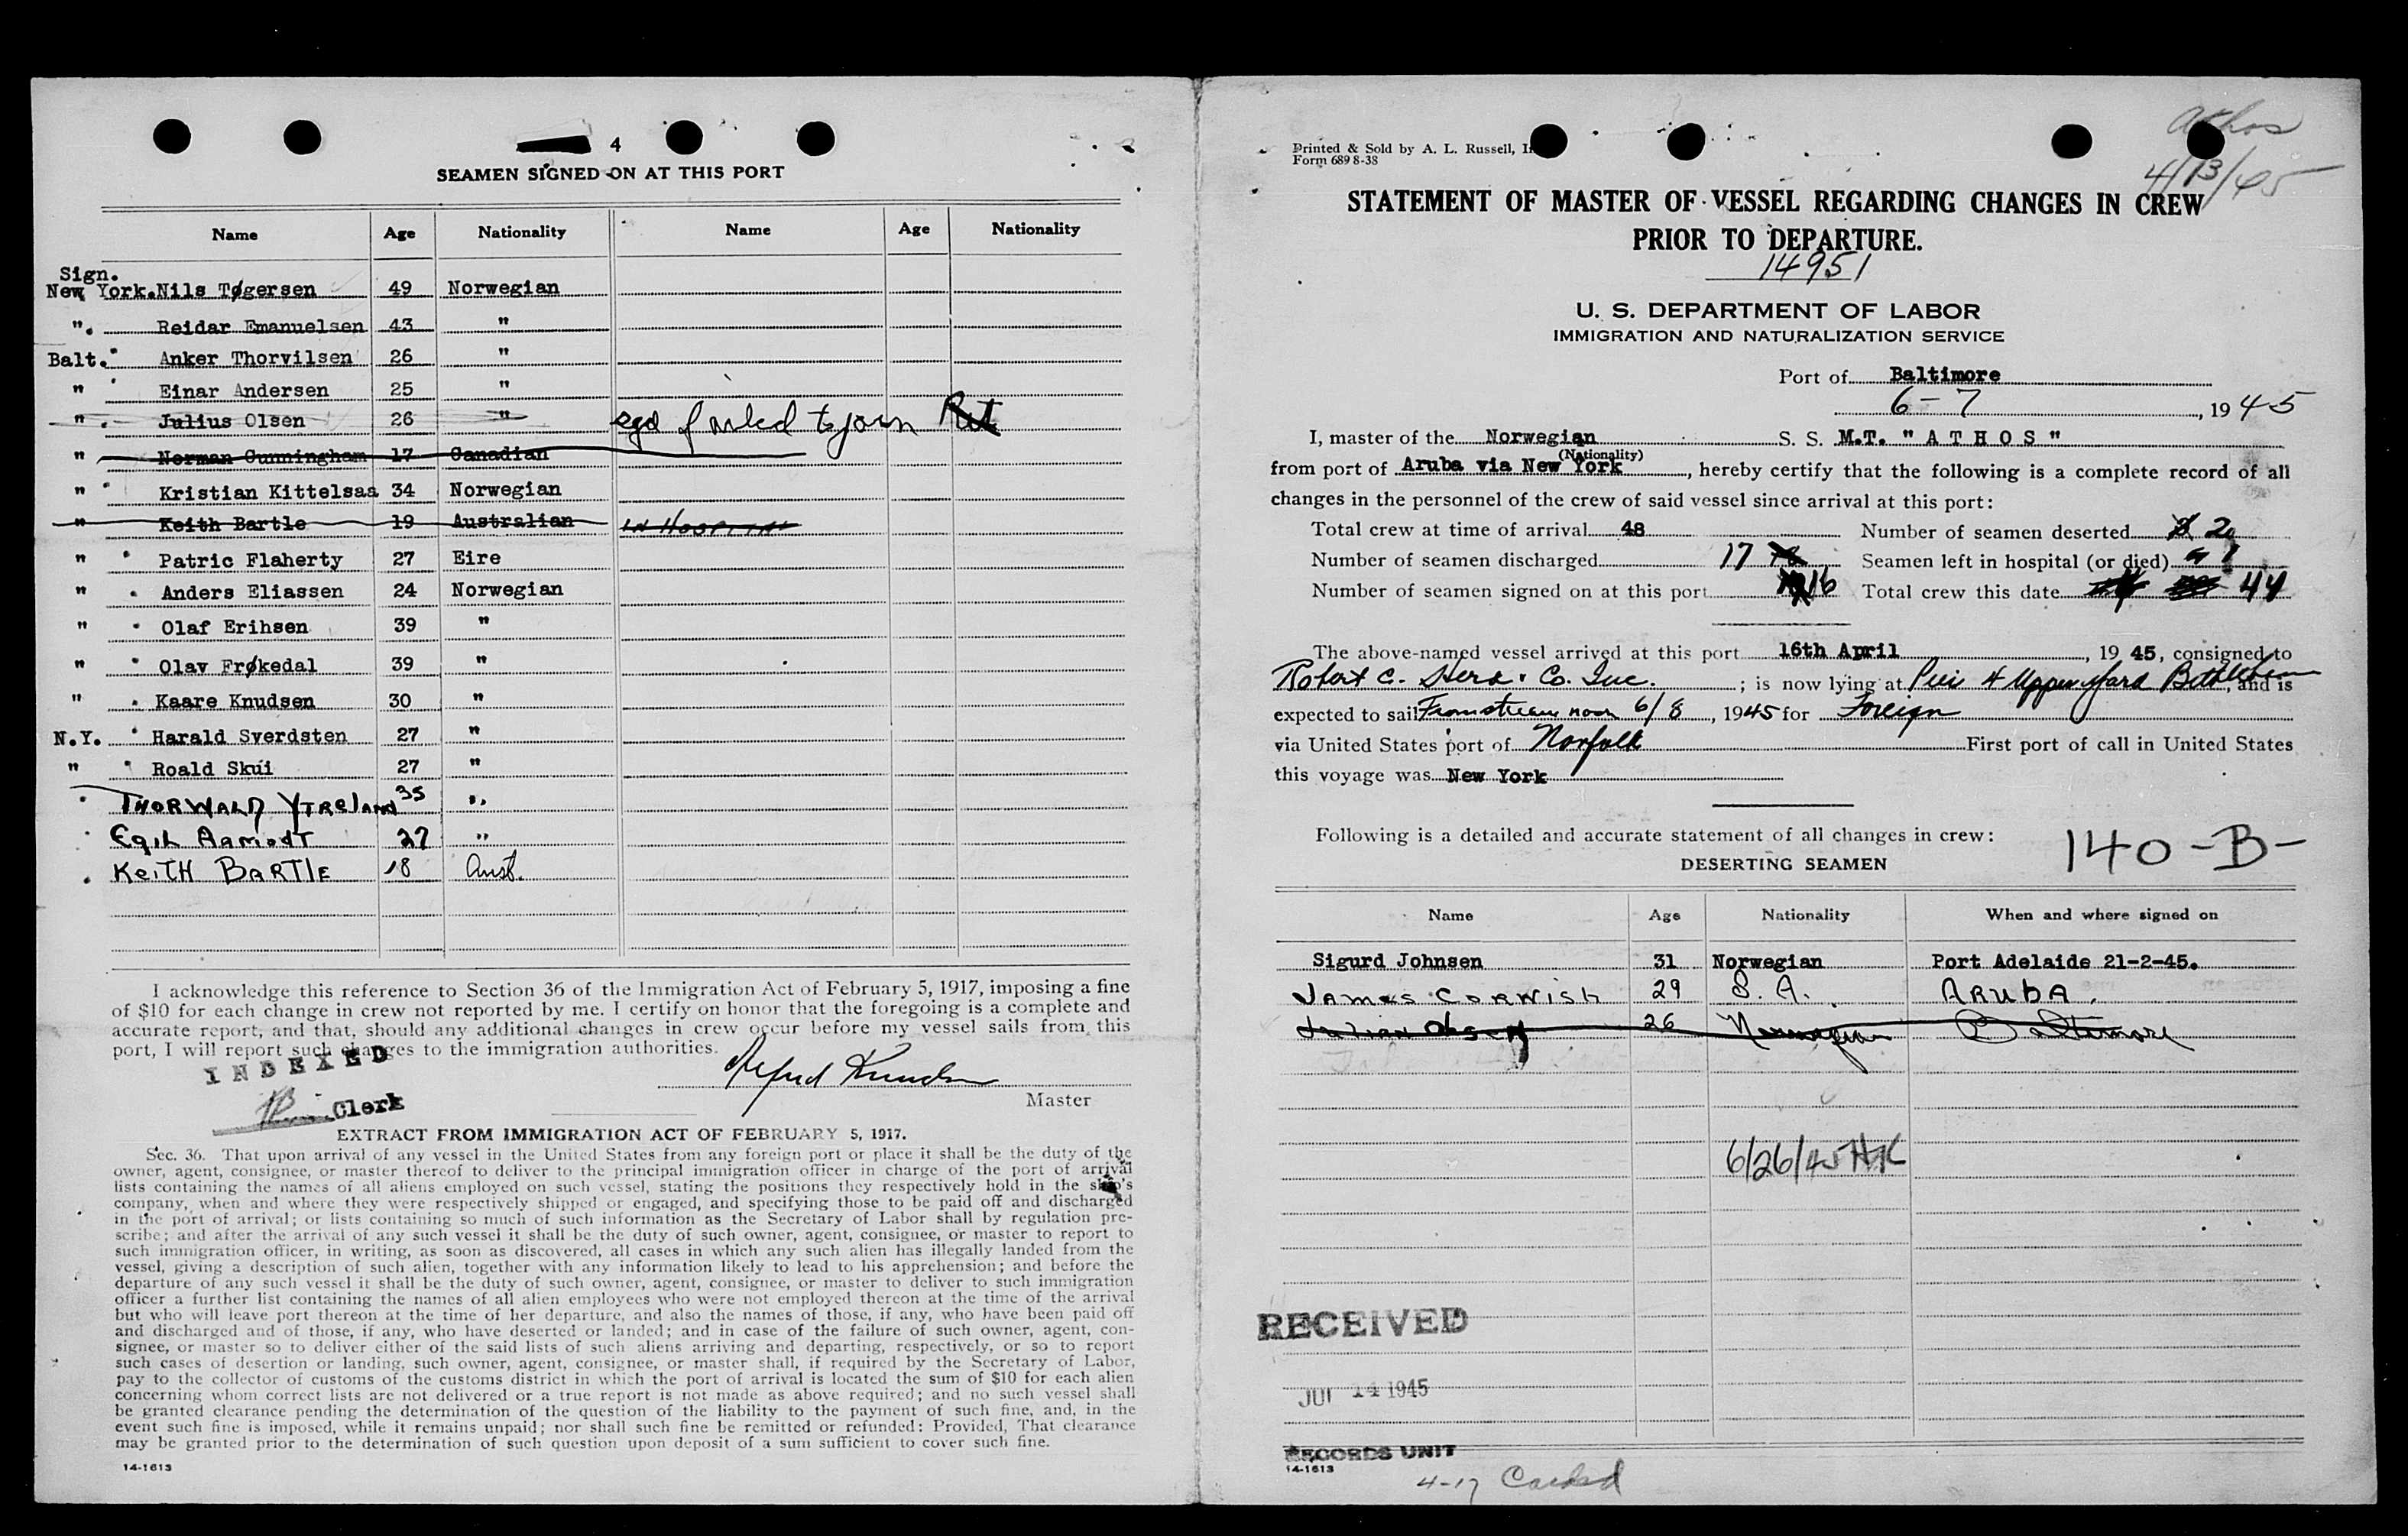 4
SEAMEN SIGNED ON AT THIS PORT
Name Age Nationality Name Age Nationality
Sign.
New York. Nils Tøgersen 49 Norwegian
". Reidar Emanuelsen 43 "
Balt." Anker Thorvilsen 26 "
" Einar Andersen 25 "
" Julius Olsen 26 " failed to join
" Norman Cunningham 17 Canadian
" Kristian Kittelsaa 34 Norwegian
" Keith Bartle 19 Australian IN HOSPITAL
" Patric Flaherty 27 Eire
" Anders Eliassen 24 Norwegian
" Olaf Erihsen 39 "
" Olav Frøkedal 39 "
" Kaare Knudsen 30 "
N.Y. Harald Sverdsten 27 "
" Roald Skui 27 "
THORWALD YTRELAND 35 "
EGIL AAMODT 27 "
KEITH BARTLE 18 Aust.
I acknowledge this reference to Section 36 of the Immigration Act of February 5, 1917, imposing a fine
of $10 for each change in crew not reported by me. I certify on honor that the foregoing is a complete and
accurate report, and that, should any additional changes in crew occur before my vessel sails from this
port, I will report such changes to the immigration authorities.
INDEXED
Alfred Knudsen
Master
Clerk
EXTRACT FROM IMMIGRATION ACT OF FEBRUARY 5, 1917.
Sec. 36. That upon arrival of any vessel in the United States from any foreign port or place it shall be the duty of the
owner, agent, consignee, or master thereof to deliver to the principal immigration officer in charge of the port of arrival
lists containing the names of all aliens employed on such vessel, stating the positions they respectively hold in the ship's
company, when and where they were respectively shipped or engaged, and specifying those to be paid off and discharged
in the port of arrival; or lists containing so much of such information as the Secretary of Labor shall by regulation pre-
scribe; and after the arrival of any such vessel it shall be the duty of such owner, agent, consignee, or master to report to
such immigration officer, in writing, as soon as discovered, all cases in which any such alien has illegally landed from the
vessel, giving a description of such alien, together with any information likely to lead to his apprehension; and before the
departure of any such vessel it shall be the duty of such owner, agent, consignee, or master to deliver to such immigration
officer a further list containing the names of all alien employees who were not employed thereon at the time of the arrival
but who will leave port thereon at the time of her departure, and also the names of those, if any, who have been paid off
and discharged and of those, if any, who have deserted or landed; and in case of the failure of such owner, agent, con-
signee, or master so to deliver either of the said lists of such aliens arriving and departing, respectively, or so to report
such cases of desertion or landing, such owner, agent, consignee, or master shall, if required by the Secretary of Labor,
pay to the collector of customs of the customs district in which the port of arrival is located the sum of $10 for each alien
concerning whom correct lists are not delivered or a true report is not made as above required; and no such vessel shall
be granted clearance pending the determination of the question of the liability to the payment of such fine, and, in the
event such fine is imposed, while it remains unpaid; nor shall such fine be remitted or refunded: Provided, That clearance
may be granted prior to the determination of such question upon deposit of a sum sufficient to cover such fine.
14-1613
Athos
4/13/45
Printed & Sold by A. L. Russell,
Form 689 8-38
STATEMENT OF MASTER OF VESSEL REGARDING CHANGES IN CREW
PRIOR TO DEPARTURE.
14951
U. S. DEPARTMENT OF LABOR
IMMIGRATION AND NATURALIZATION SERVICE
Port of Baltimore
6-7, 1945
I, master of the Norwegian S. S. M.T. "ATHOS"
(Nationality)
from port of Aruba via New York, hereby certify that the following is a complete record of all
changes in the personnel of the crew of said vessel since arrival at this port:
Total crew at time of arrival 48 Number of seamen deserted 2
Number of seamen discharged 17 Seamen left in hospital (or died) 1
Number of seamen signed on at this port 16 Total crew this date 44
The above-named vessel arrived at this port 16th April, 19 45, consigned to
Robert C. Herd & Co. Inc.; is now lying at Pier 4 Upper Yard Bethlehem, and is
expected to sail From stream noon 6/8, 1945 for Foreign
via United States port of Norfolk First port of call in United States
this voyage was New York
Following is a detailed and accurate statement of all changes in crew:
140-B-
DESERTING SEAMEN
Name Age Nationality When and where signed on
Sigurd Johnsen 31 Norwegian Port Adelaide 21-2-45.
JAMES CORNISH 29 S.A. ARUBA.
26 Norwegian Baltimore
6/26/45 HK
RECEIVED
14 1945
RECORDS UNIT
14-1613
4-17 Carded